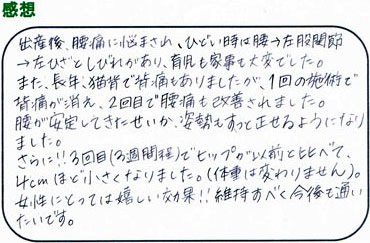 感想
出産後、腰痛に悩まされ、ひどい時は腰→左股関節
→左ひざとしびれがあり、育児も家事も大変でした。
また、長年、猫背で背痛もありましたが、1回の施術で
背痛が消え、2回目で腰痛も改善されました。
腰が安定してきたせいか、姿勢もすっと正せるようになり
ました。
さらに!!3回目(3週間程)でヒップが以前と比べて、
4cmほど小さくなりました。(体重は変わりません)。
女性にとっては嬉しい効果!!維持すべく今後も通い
たいです。